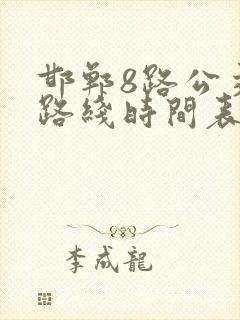 邯鄲8路公交
路綫時間表
李成龍